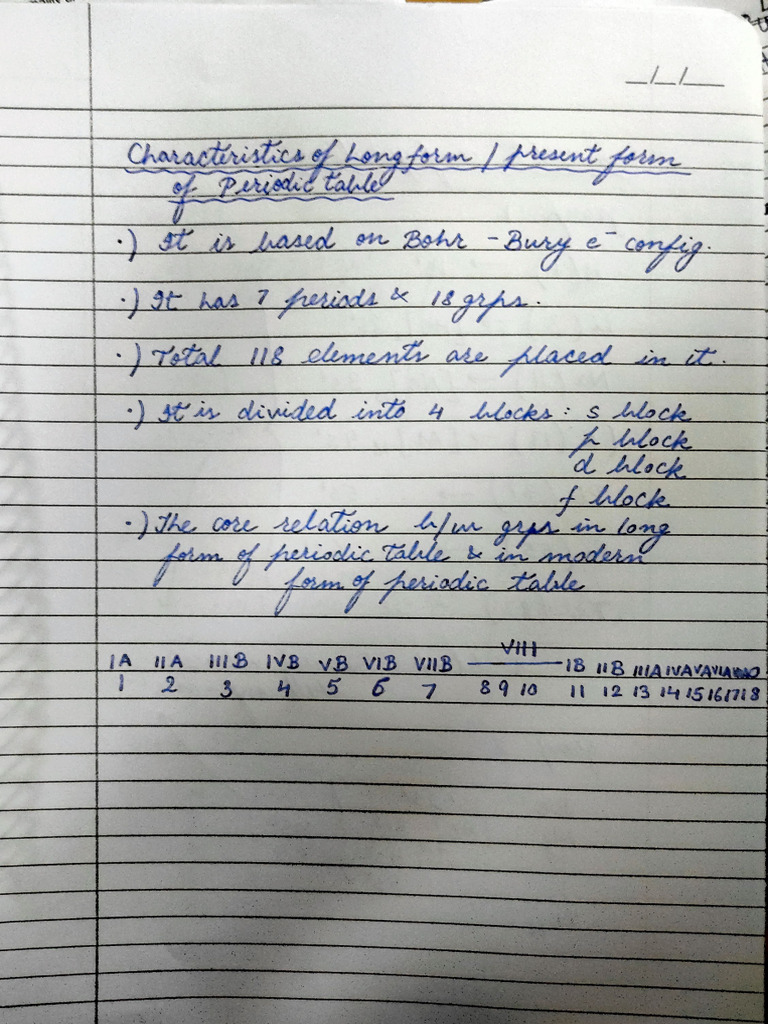 __/__/__
Characteristics of Long form / present form
of Periodic table
•) It is based on Bohr - Bury e⁻ config.
•) It has 7 periods & 18 grps.
•) Total 118 elements are placed in it.
•) It is divided into 4 blocks : s block
p block
d block
f block
•) The core relation b/w grps in long
form of periodic table & in modern
form of periodic table
VIII
IA IIA IIIB IVB VB VIB VIIB IB IIB IIIA IVA VA VIA
1 2 3 4 5 6 7 8 9 10 11 12 13 14 15 16 17 18